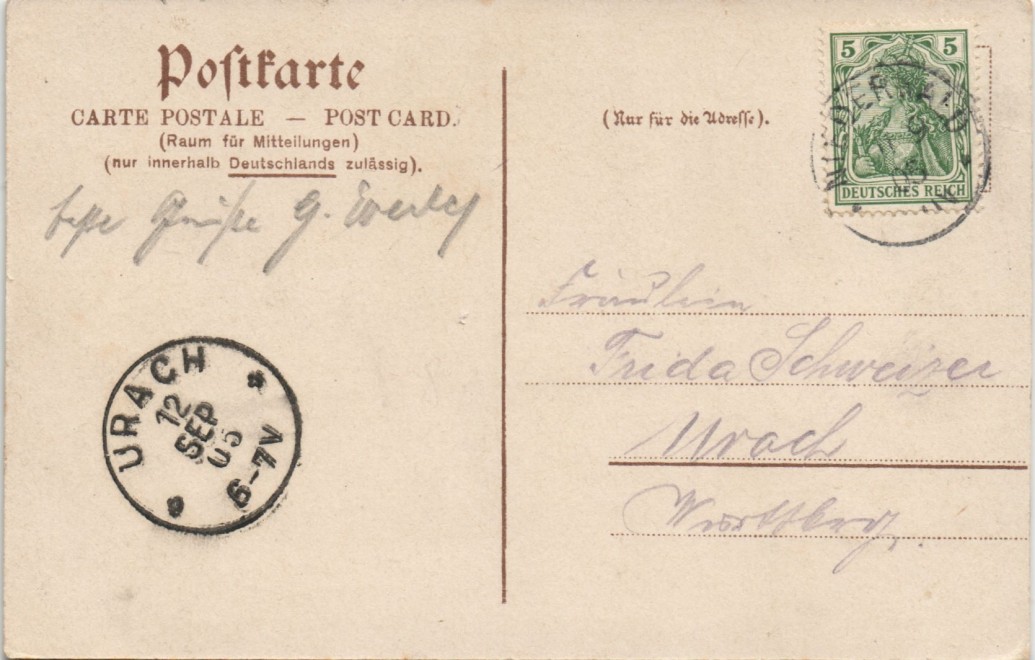 Postkarte
CARTE POSTALE — POST CARD.
(Raum für Mitteilungen)
(nur innerhalb Deutschlands zulässig).
beste Grüße G.
(Nur für die Adresse).
5 5
DEUTSCHES REICH
NIEDERWALD
Fräulein
Frida Schweizer
Urach
Württberg.
URACH
12
SEP
05
6-7V